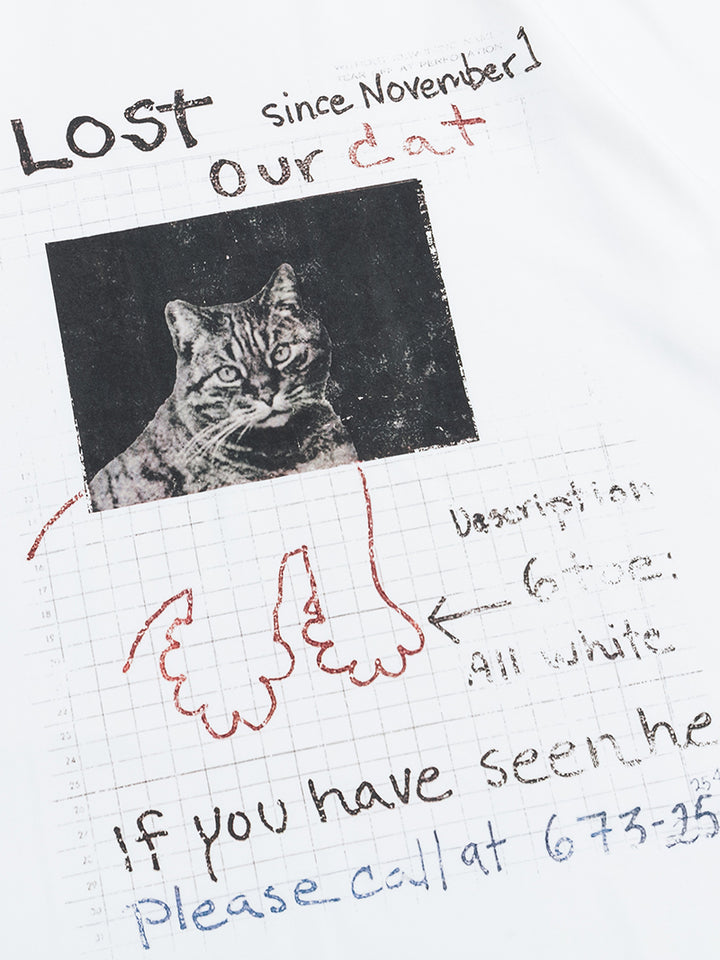 LOST since November 1
our cat
Description
6 toe:
All white
If you have seen he
please call at 673-25